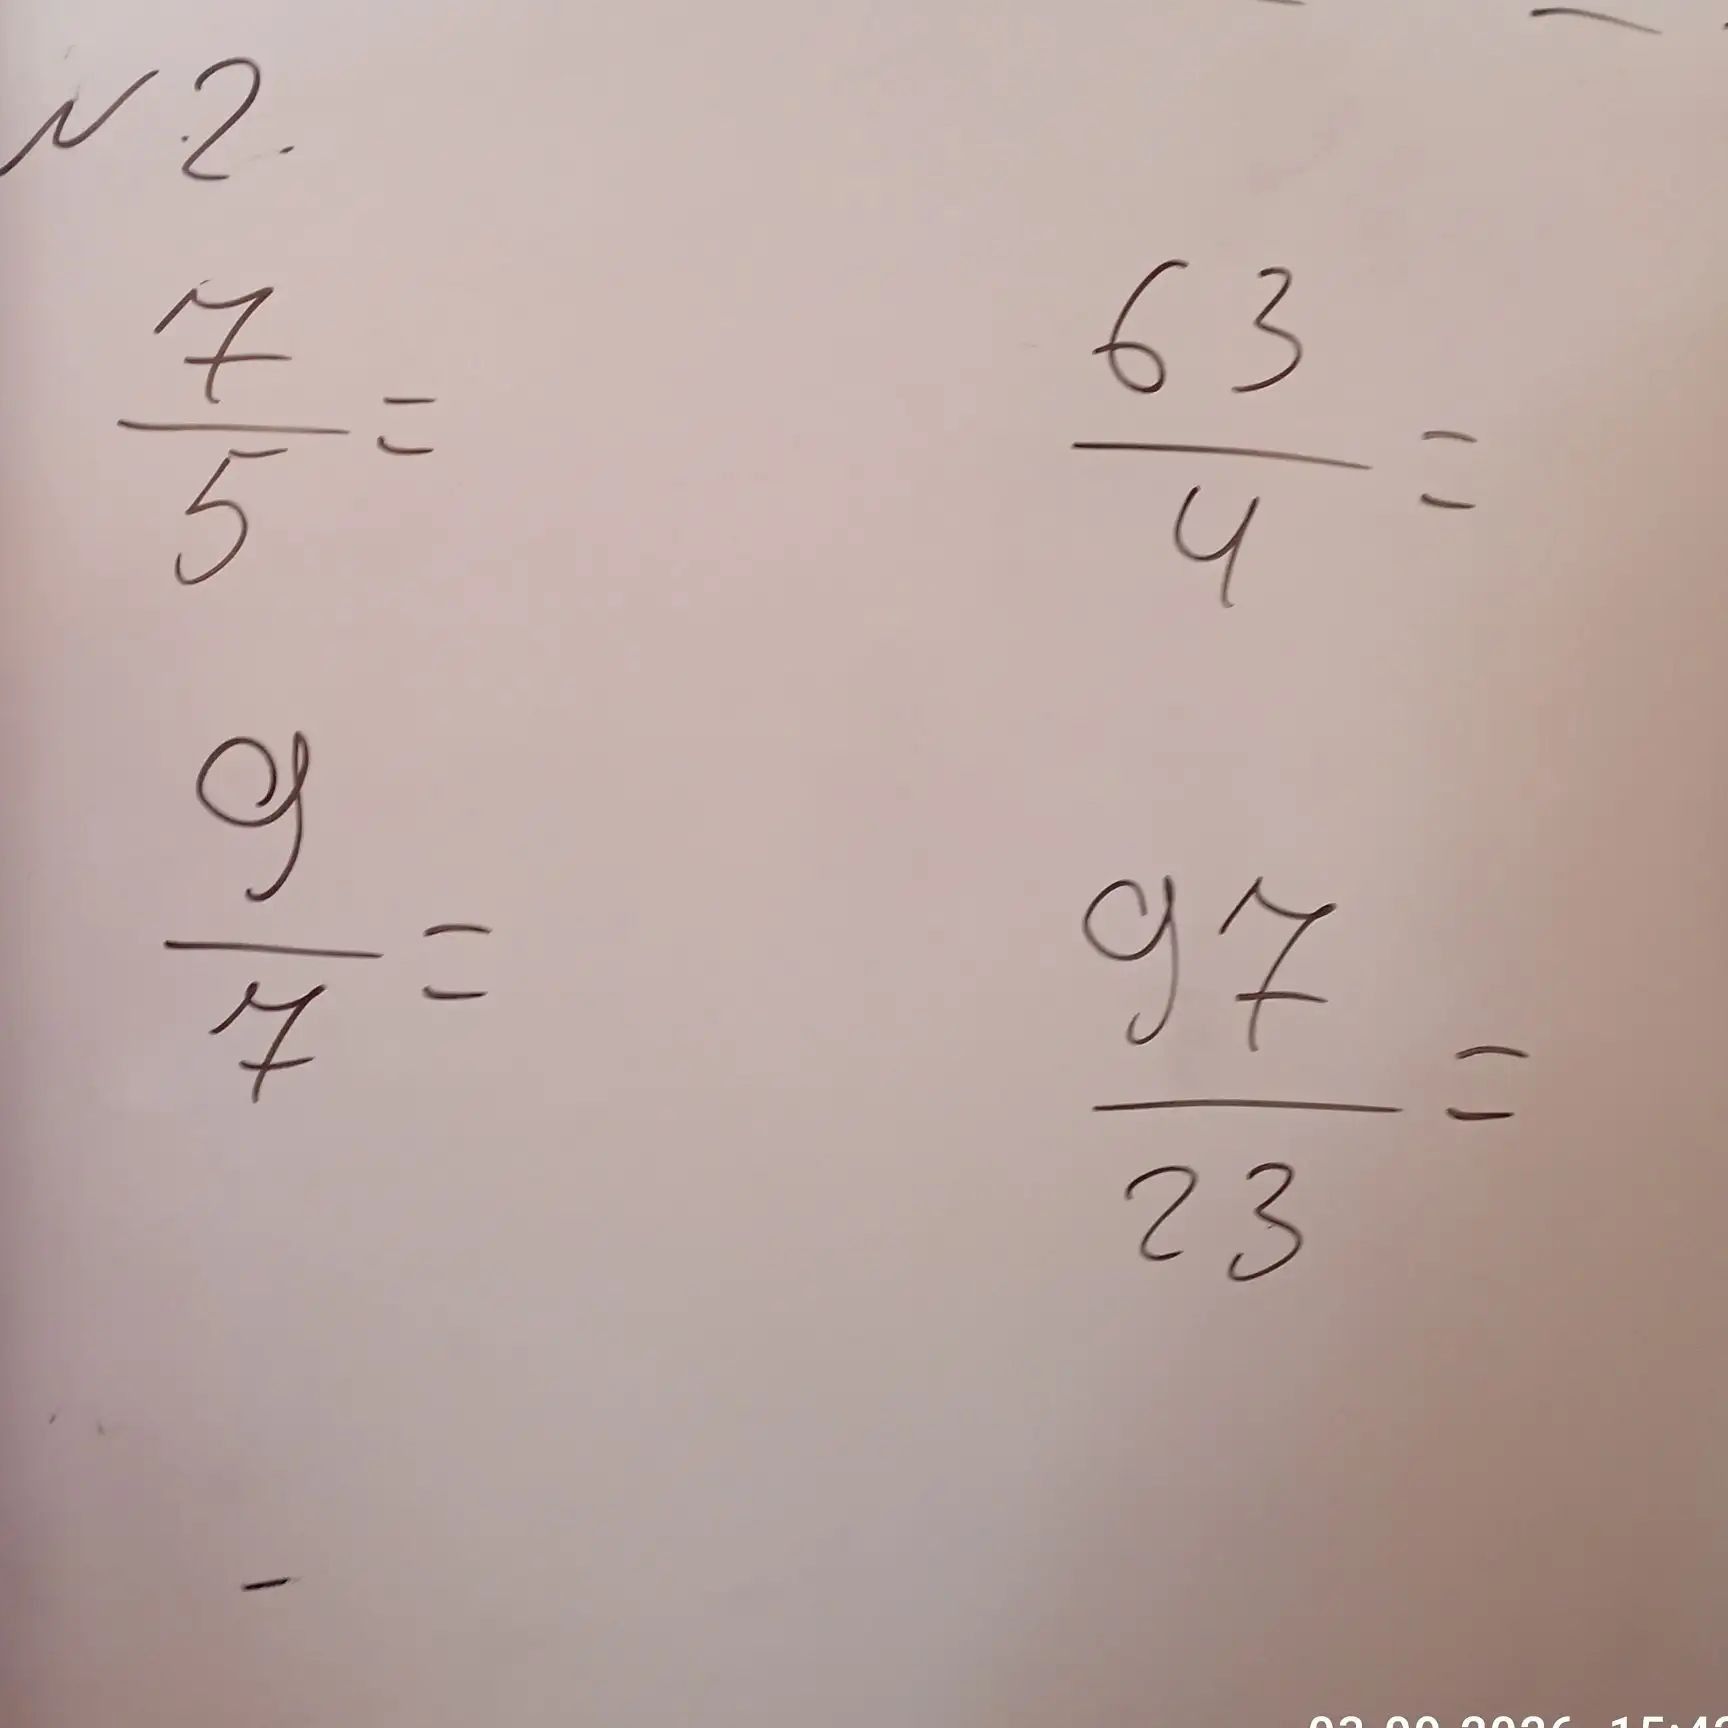 N 2.
7/5 =
63/4 =
9/7 =
97/23 =